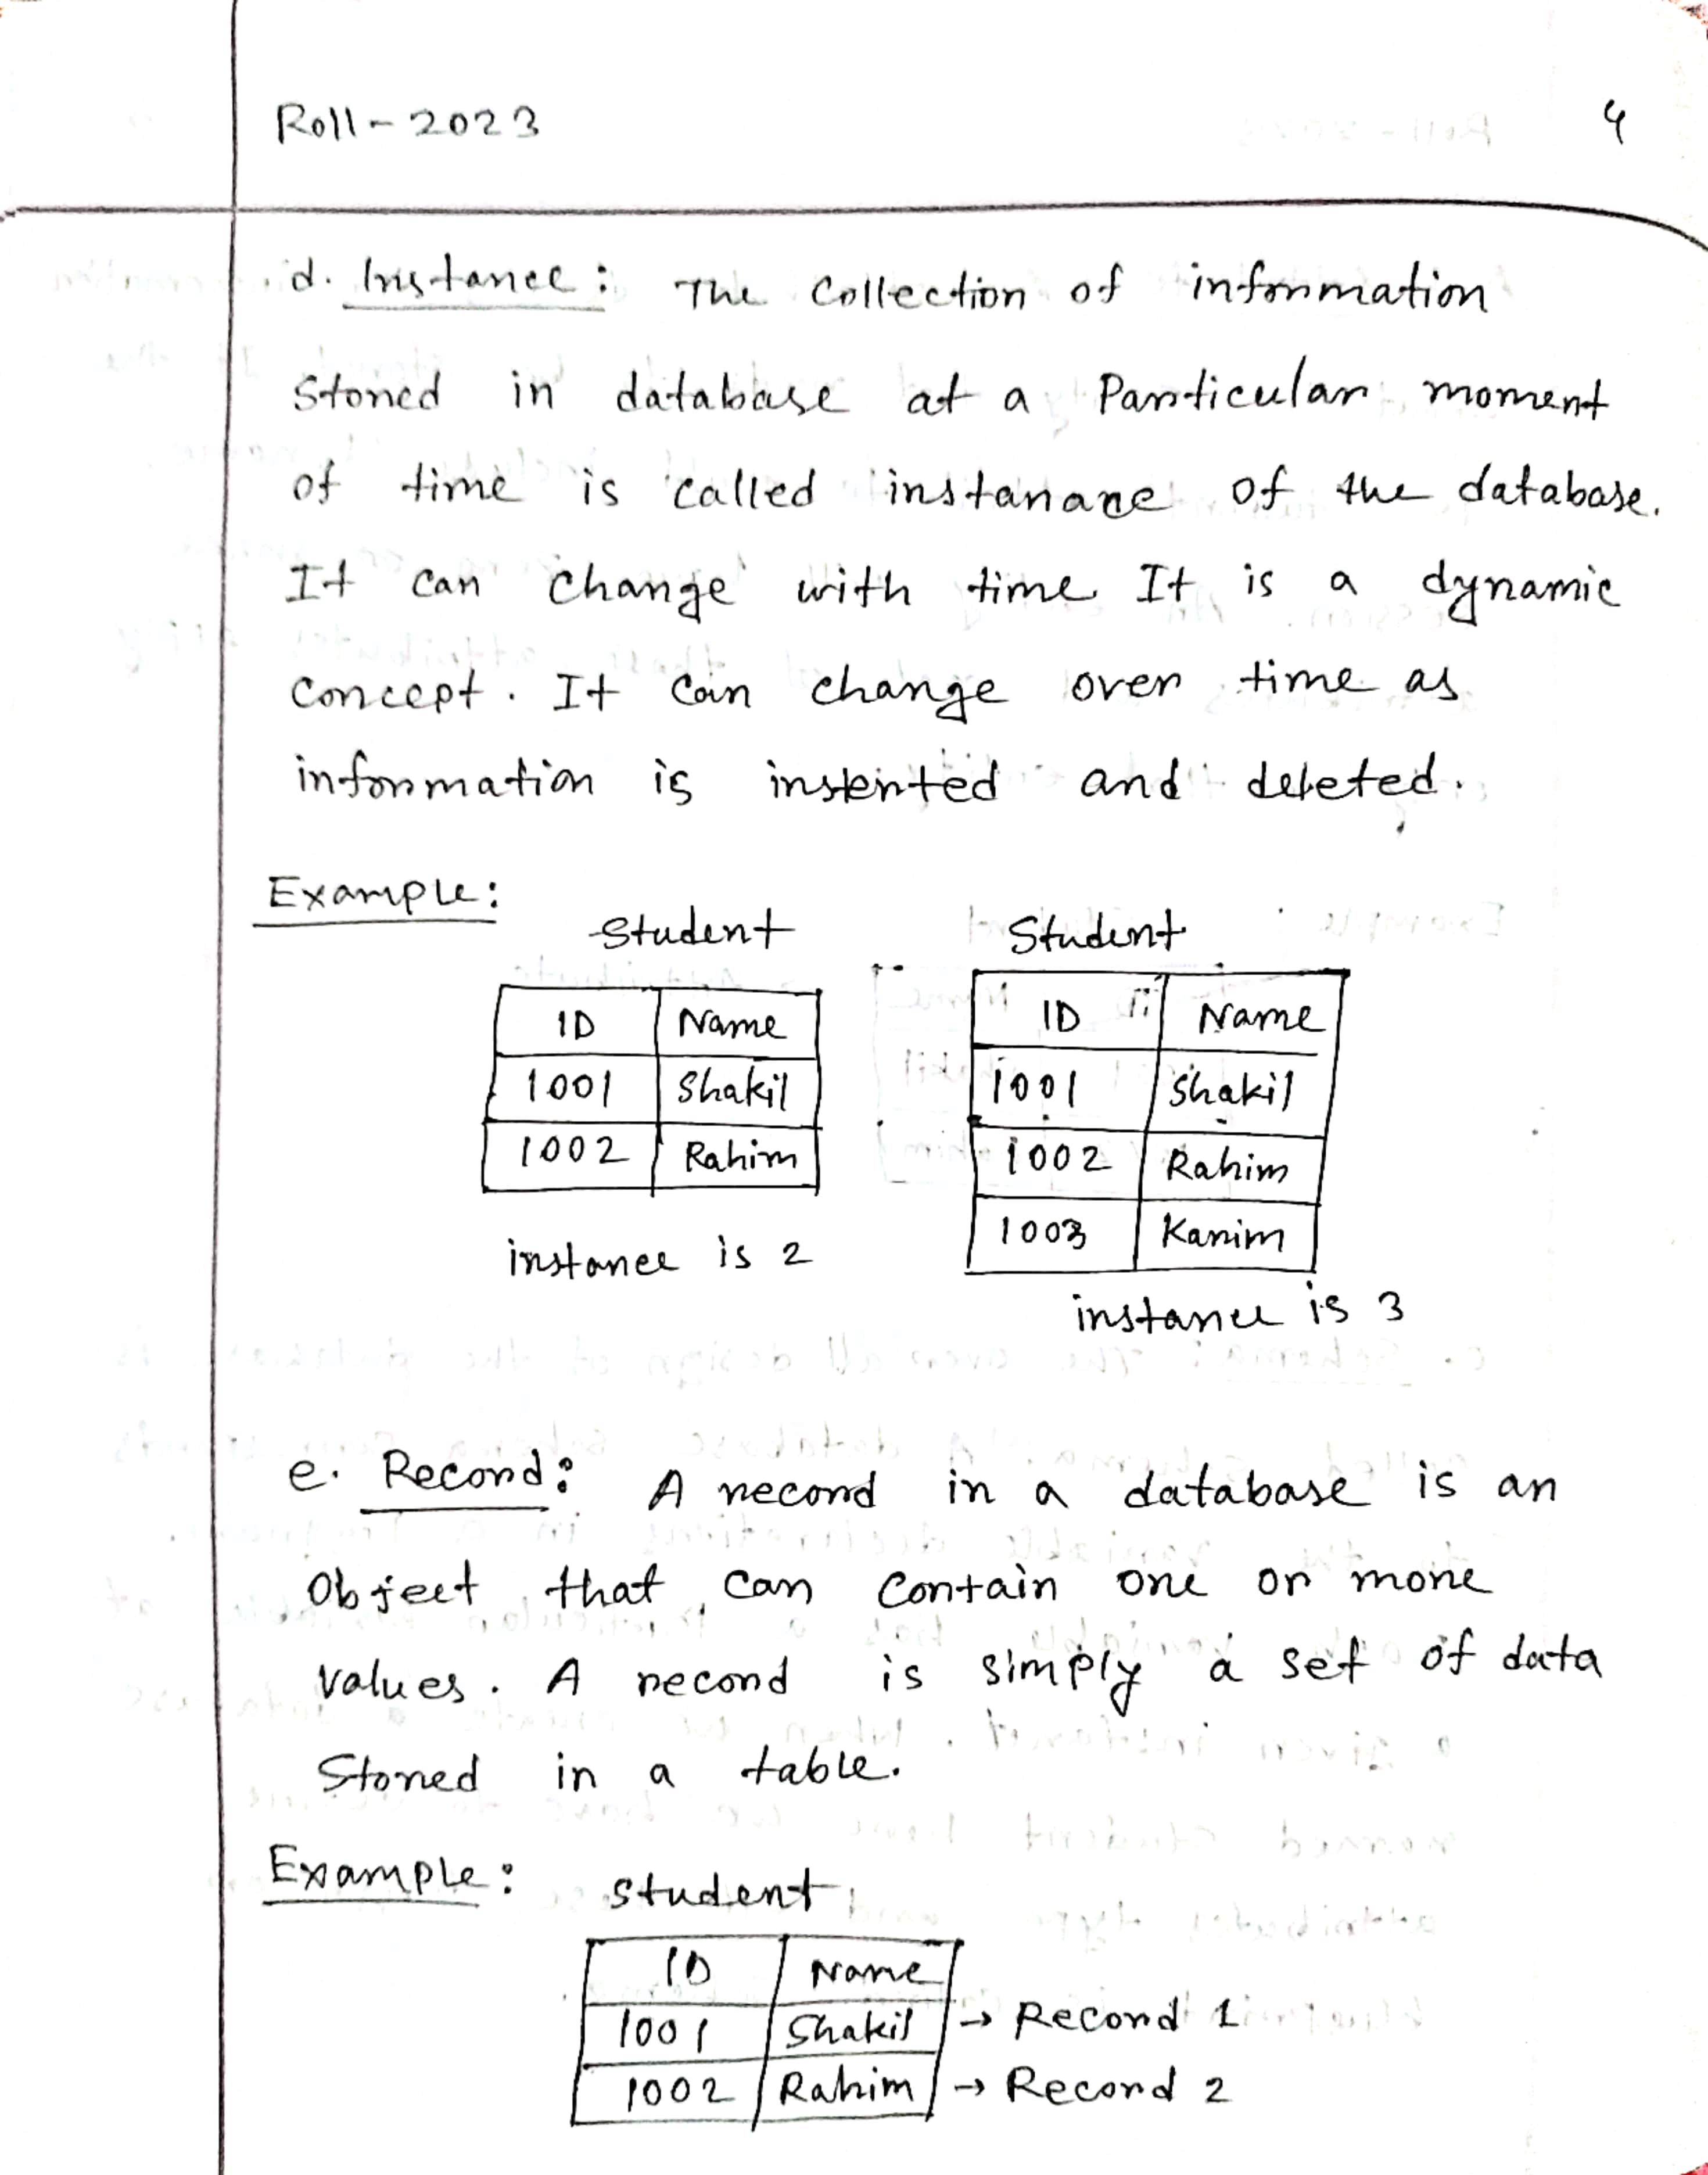 Roll-2023
4
d. Instance: The Collection of information
Stored in database at a Particular moment
of time is called instanace of the database.
It can change with time It is a dynamic
concept. It can change over time as
information is inserted and deleted.
Example:
Student Student
ID Name ID Name
1001 Shakil 1001 Shakil
1002 Rahim 1002 Rahim
1003 Karim
instance is 2
instance is 3
e. Record: A record in a database is an
Object that can contain one or more
values. A record is simply a set of data
Stored in a table.
Example: student
ID Name
1001 Shakil → Record 1
1002 Rahim → Record 2